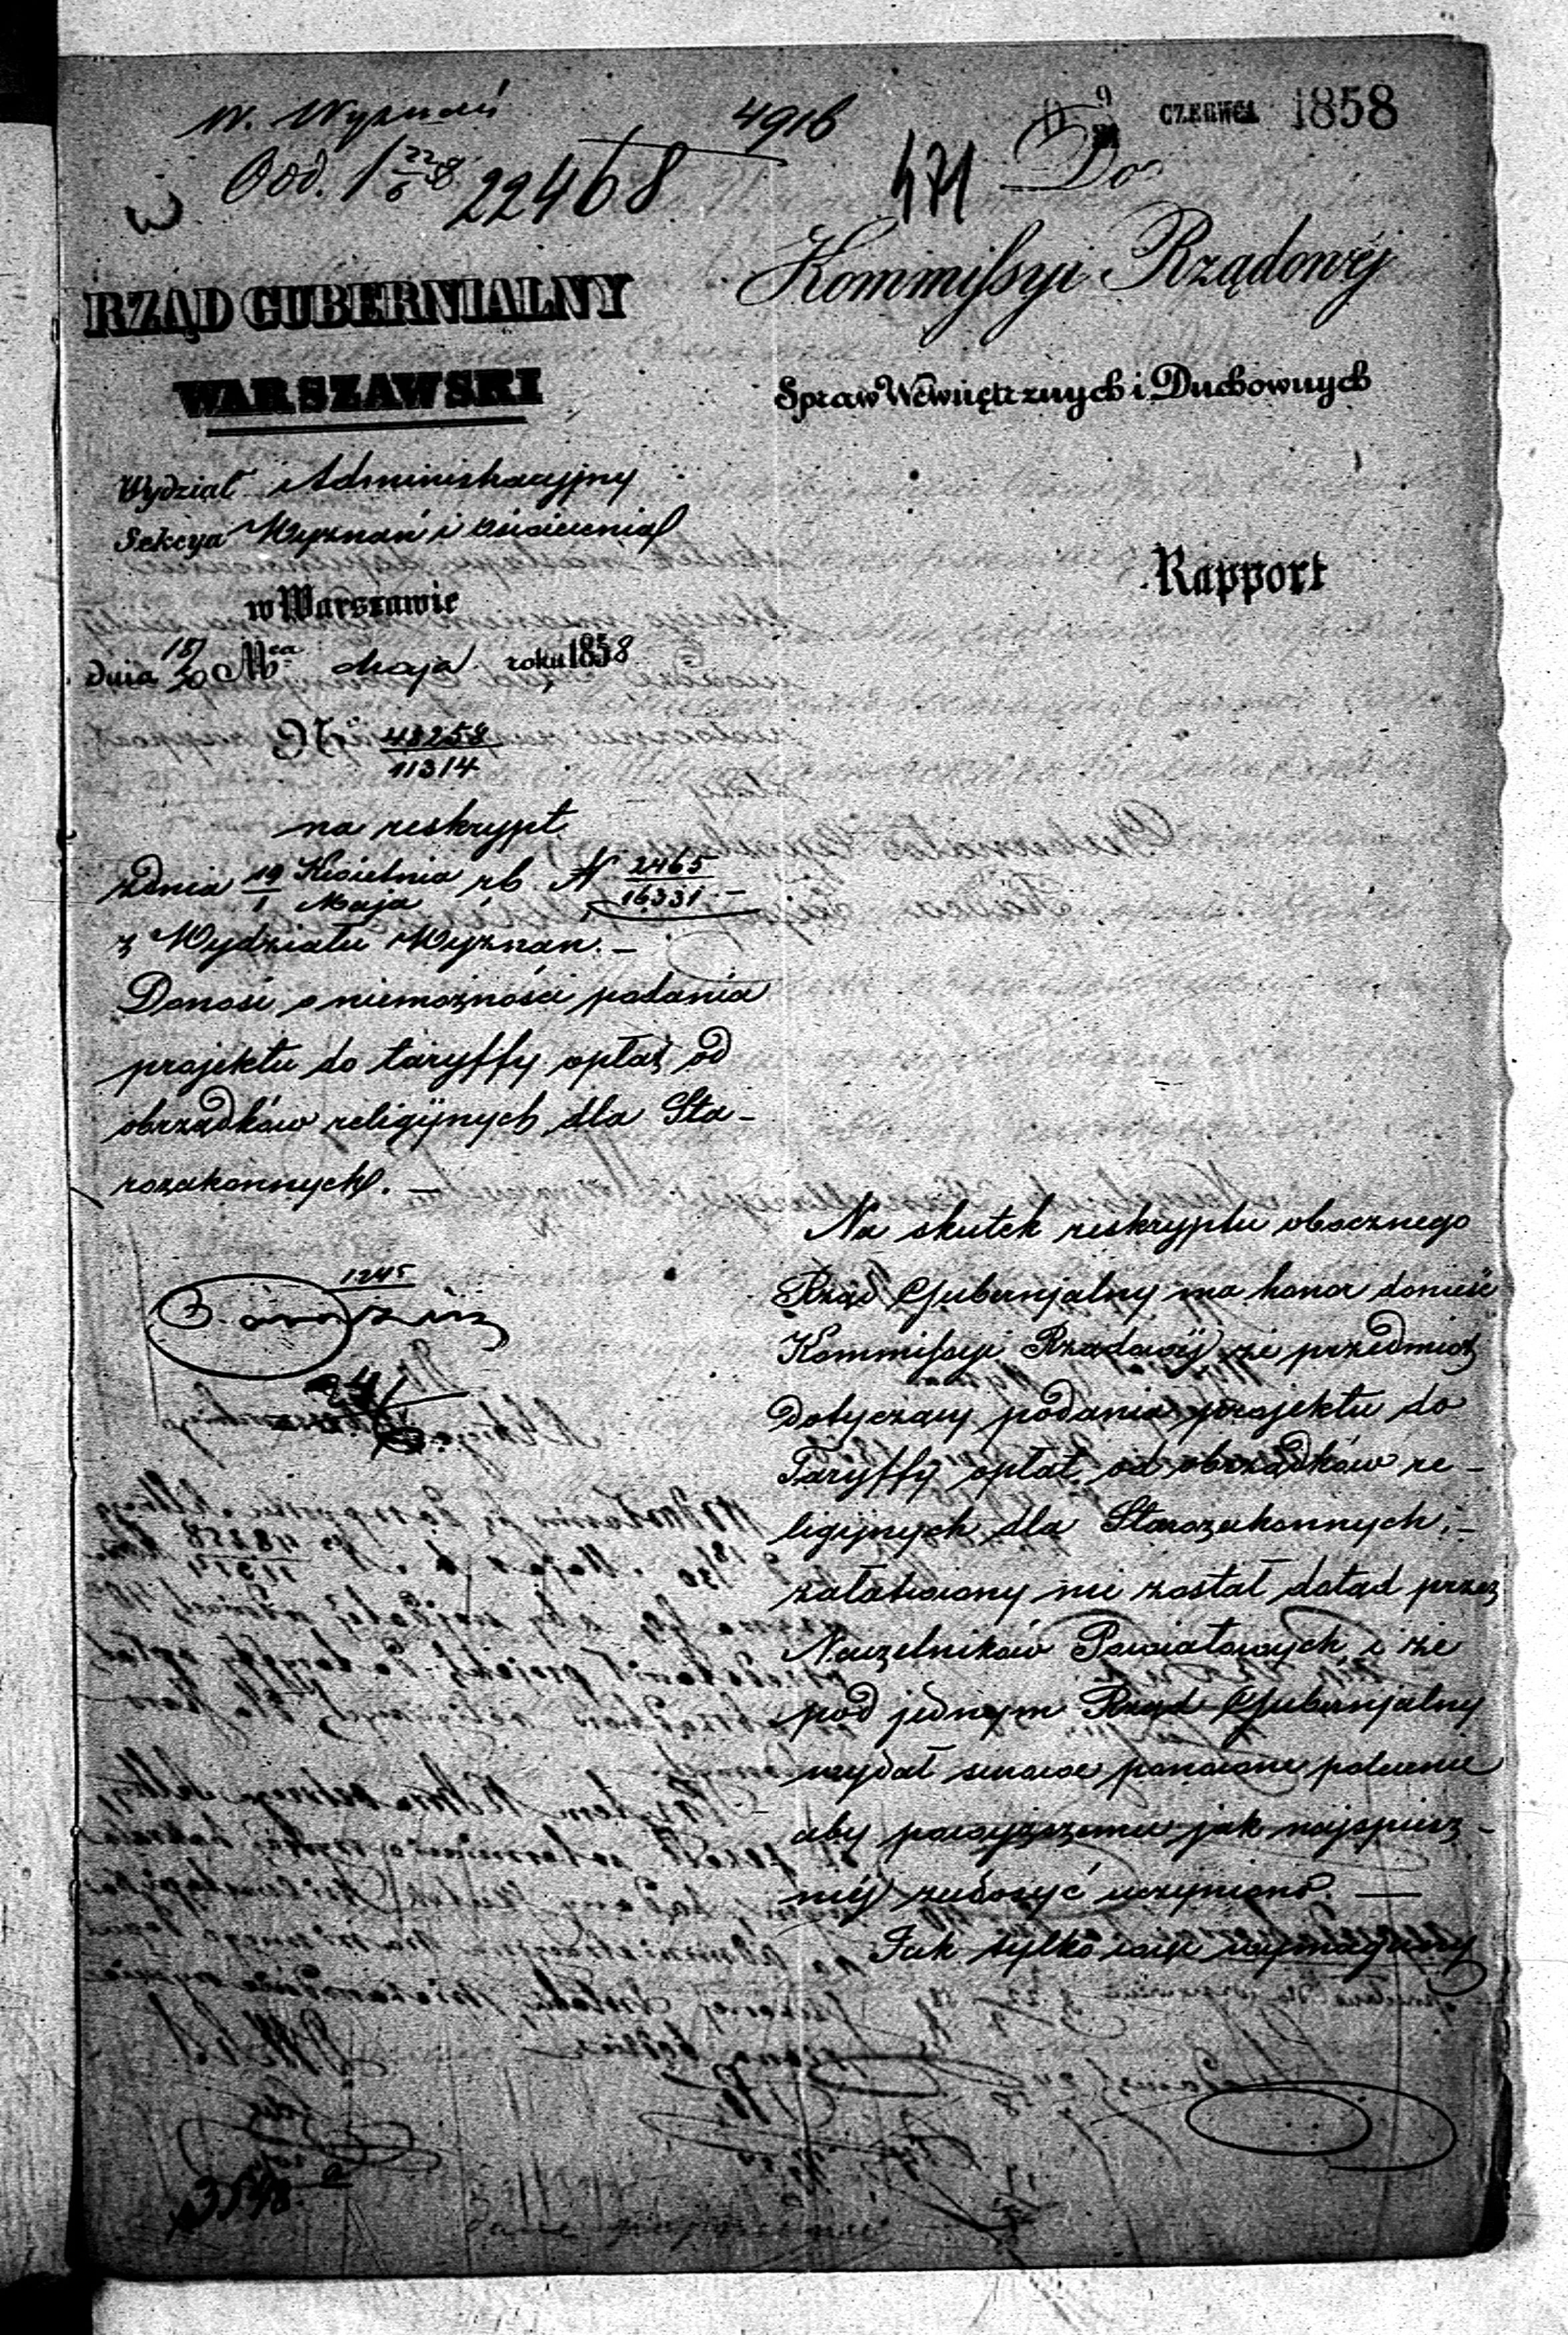 W. Wyznań
Odd. 1 22/6 8
22468
4916
471
9 CZERWCA 1858
Do
Kommissyi Rządowéj
Spraw Wewnętrznych i Duchownych
Rapport
RZĄD GUBERNIALNY
WARSZAWSKI
Wydział Administracyjny
Sekcya Wyznań i Oświecenia
w Warszawie
dnia 18/30 Mca Maja roku 1858
No 48258/11314
na reskrypt
z dnia 19 Kwietnia/1 Maja rb. N 2465/16331 –
z Wydziału Wyznań. –
Donosi o niemożności podania
projektu do taryffy opłat od
obrządków religijnych dla Sta-
rozakonnych. –
1245
Na skutek reskryptu obocznego
Rząd Gubernjalny ma honor donieść
Kommissyi Rządowéj że przedmiot
dotyczący podania projektu do
Taryffy opłat od obrządków re-
ligijnych dla Starozakonnych, –
załatwiony nie został dotąd przez
Naczelników Powiatowych i że
pod jednym Rząd Gubernjalny
wydał surowe ponowne polecenie
aby powyższemu jak najspiesz-
niéj zadosyć uczyniono. —
Jak tylko więc wymagany